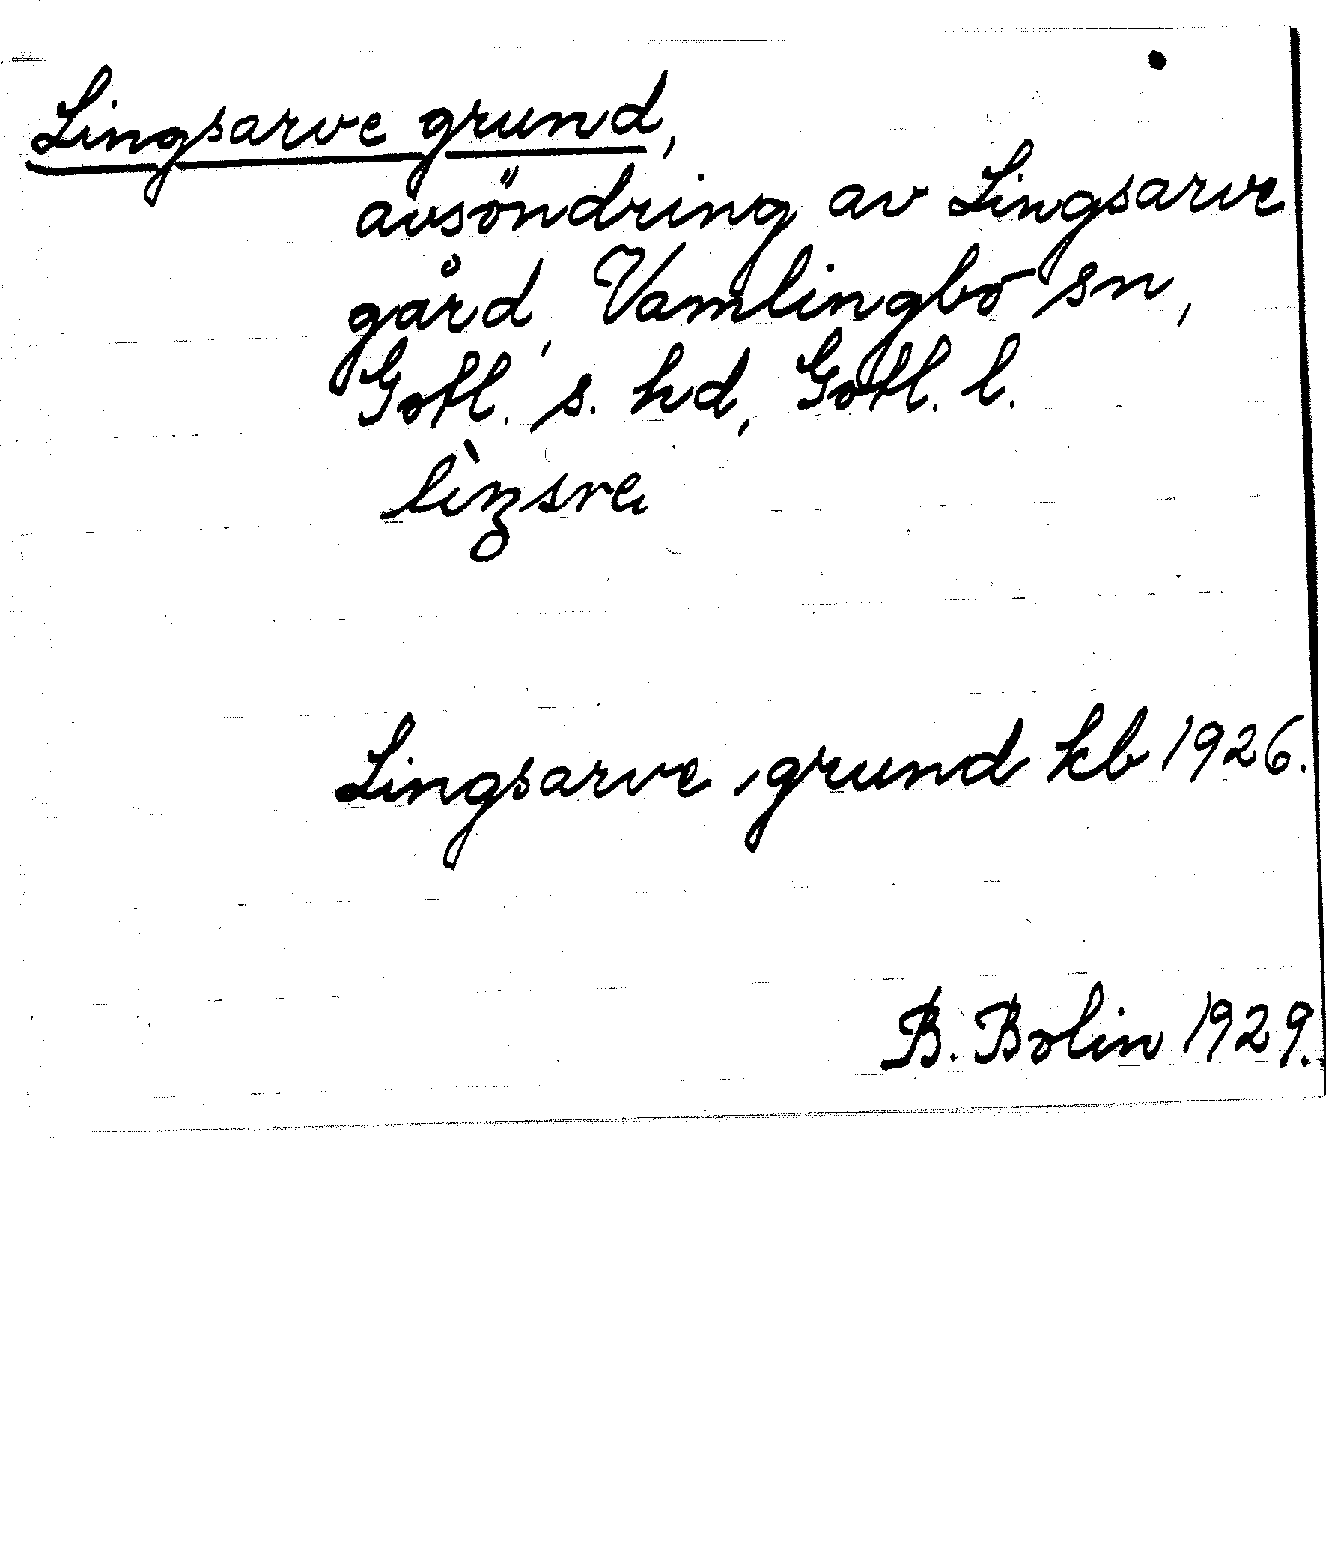 Lingsarve grund,
avsöndring av Lingsarve
gård, Vamlingbo sn,
Gotl. s. hd, Gotl. l.
Lingsarve, grund kb 1926.
B. Bolin 1929.